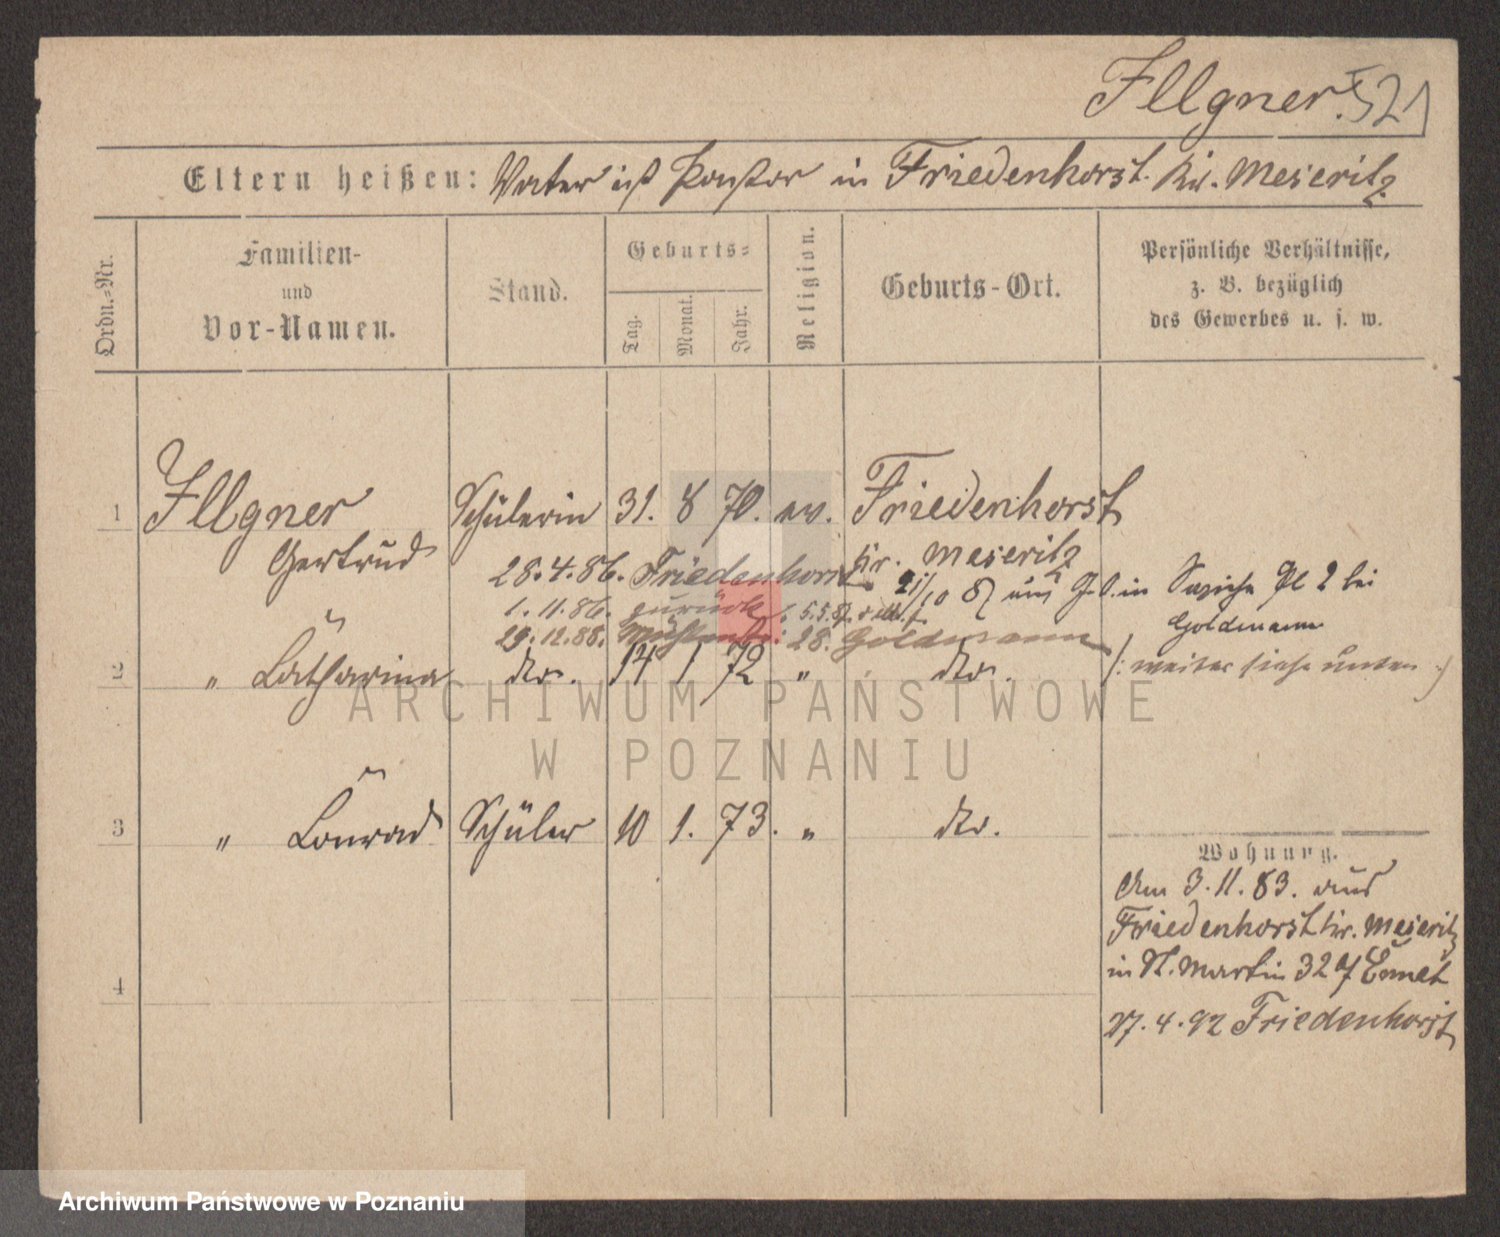 Illgner. 521
Eltern heißen: Vater ist Pastor in Friedenhorst Kr. Meseritz
Ordn.-Nr.
Familien-
und
Vor-Namen.
Stand.
Geburts-
Tag.
Monat.
Jahr.
Religion.
Geburts-Ort.
Persönliche Verhältnisse,
z. B. bezüglich
des Gewerbes u. s. w.
1 Illgner Schülerin 31. 8 70. ev. Friedenhorst
Gertrud Kr. Meseritz
28.4.86. Friedenhorst
21/10 87 aus in bei
1.11.86. zurück 5.5.87.
Goldmann
29.12.88. 28. Goldmann
2 " Catharina do. 14 1 72 " do. /: weiter siehe unten :/
3 " Conrad Schüler 10 1. 73. " do.
Wohnung.
Am 3.11.83. aus
Friedenhorst Kr. Meseritz
in St. Martin 32
4
27.4.92 Friedenhorst
ARCHIWUM PAŃSTWOWE
W POZNANIU
Archiwum Państwowe w Poznaniu